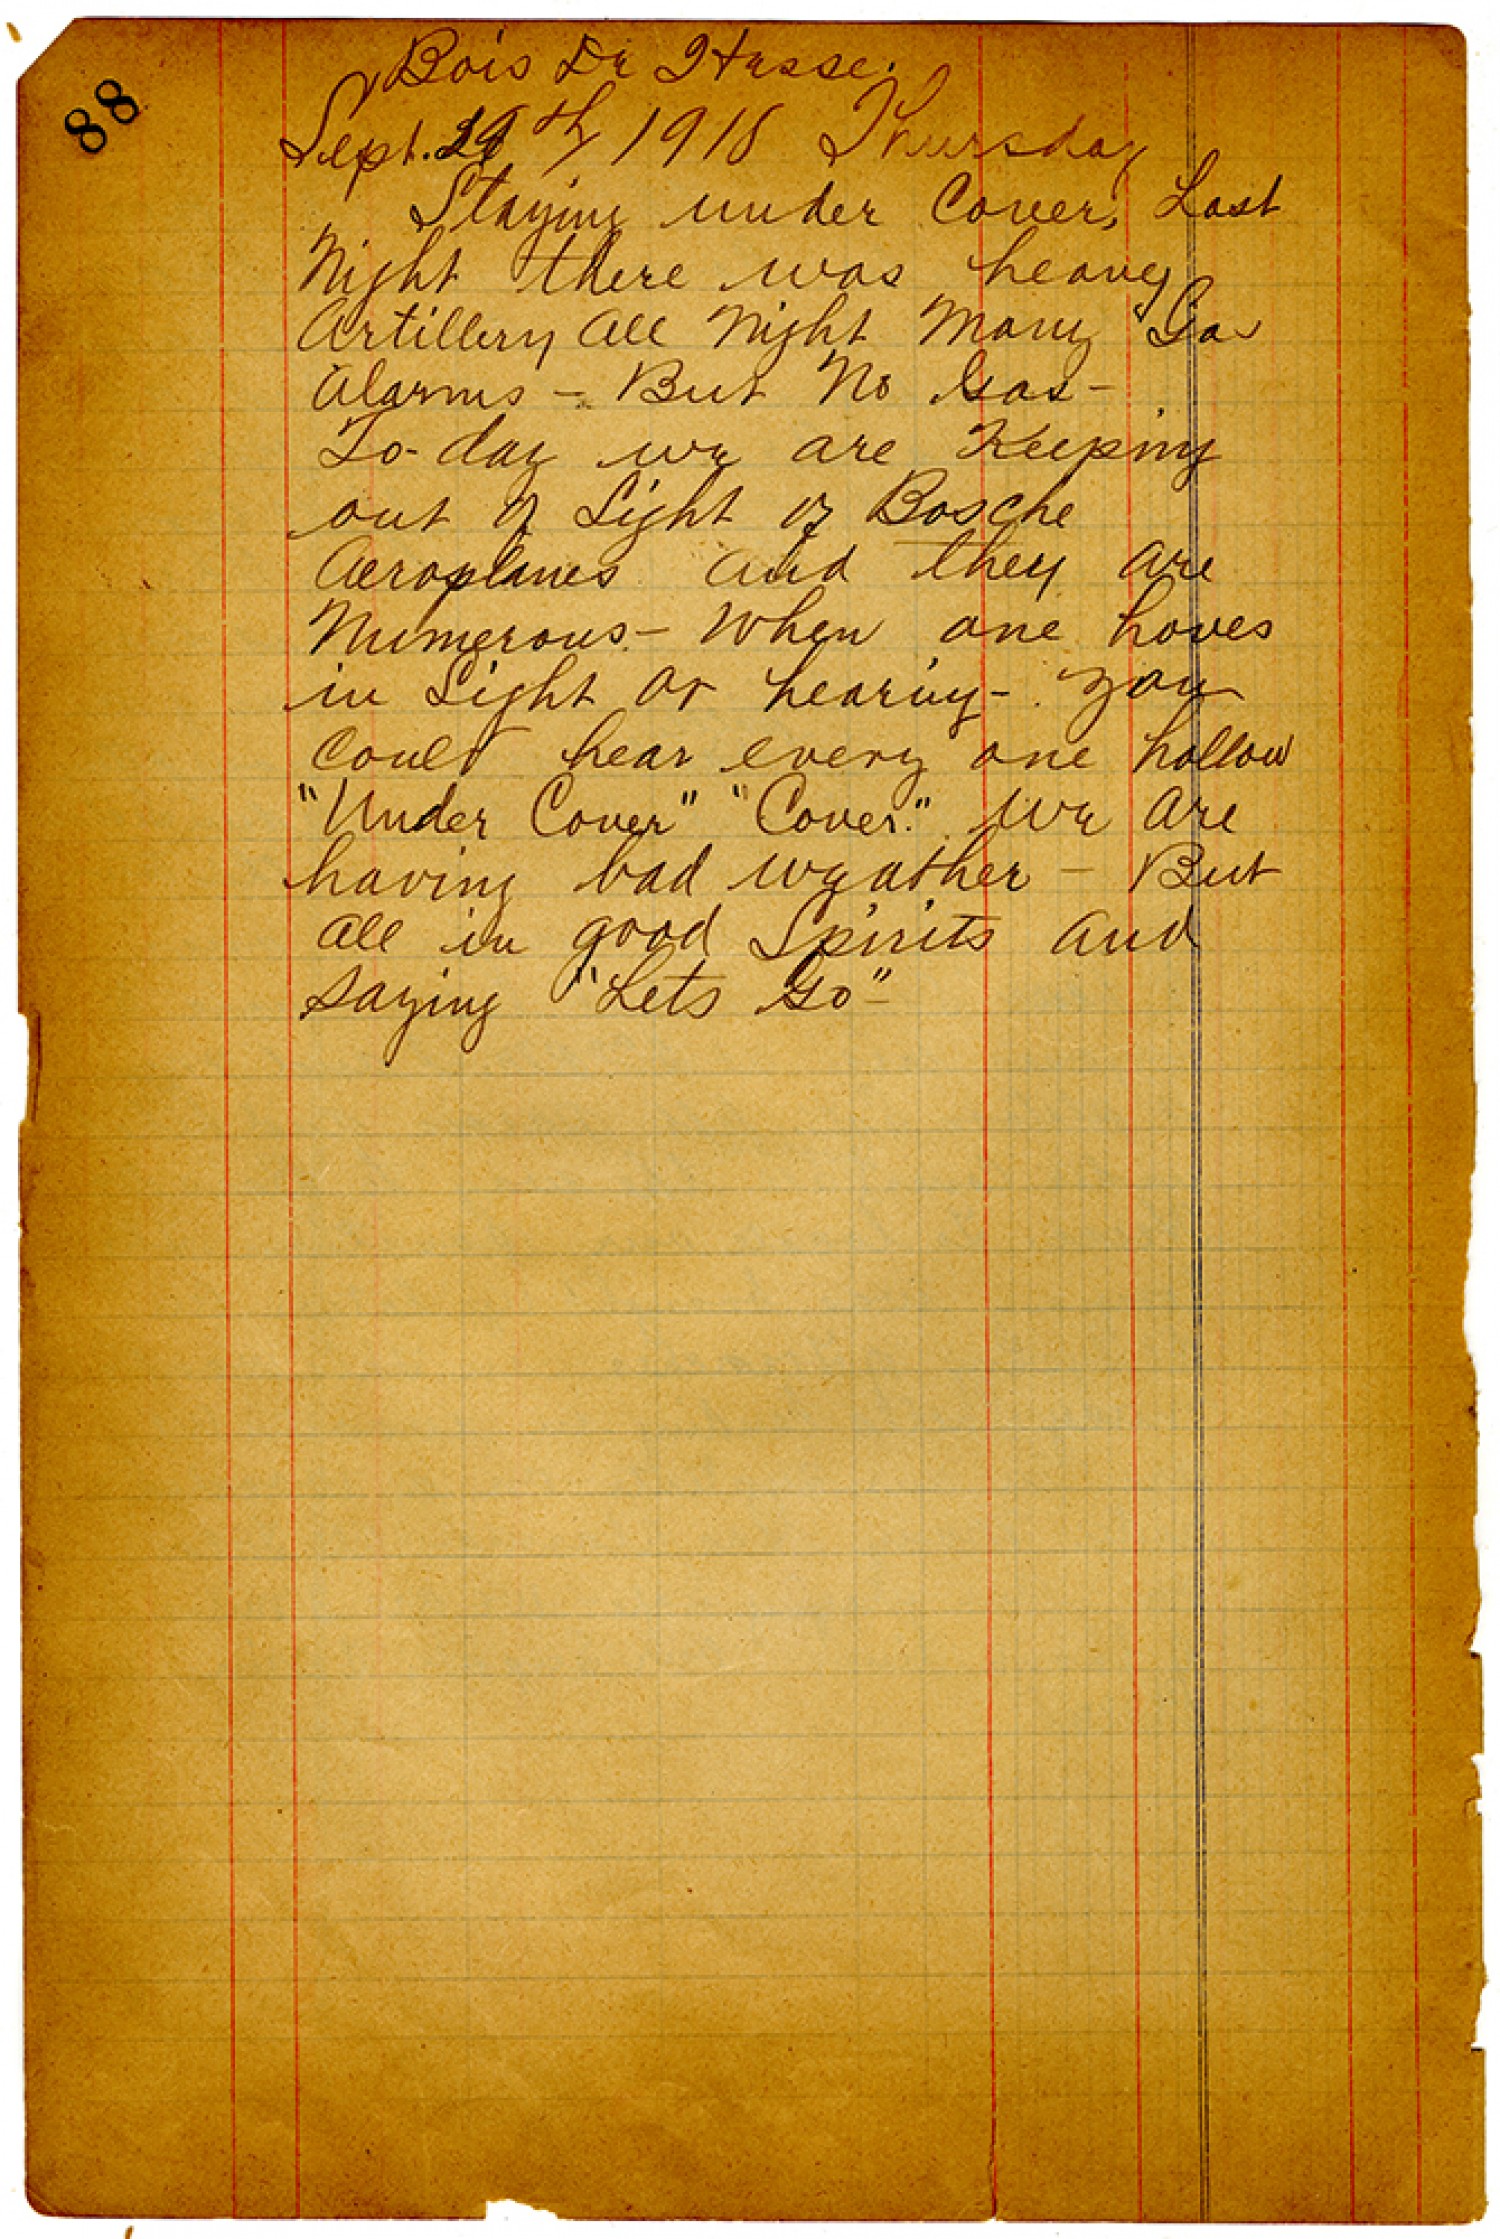 88
Bois De Hesse.
Sept. 29th 1918 Thursday
Staying under Cover, Last
Night there was heavy
Artillery all Night Many Gas
Alarms - But No Gas -
To-day we are Keeping
out of Sight of Bosche
Aeroplanes and they are
Numerous - When one hoves
in Sight or hearing - you
could hear every one hollow
"Under Cover" "Cover." We are
having bad weather - But
all in good Spirits and
saying "Lets Go" -